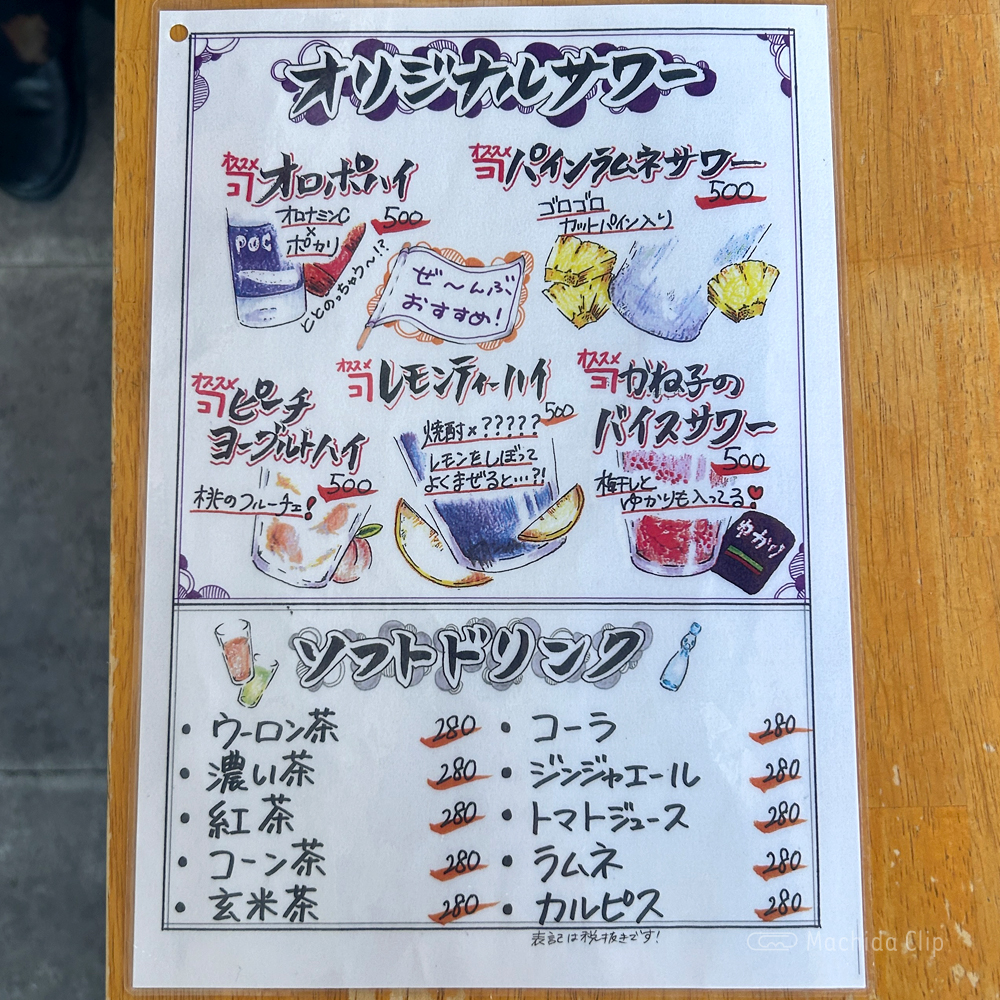 オリジナルサワー
オススメ
コ
オロポハイ
オロナミンC
×
ポカリ
500
POC
ととのっちゃう〜!?
オススメ
コ
パインラムネサワー
500
ゴロゴロ
カットパイン入り
ぜ〜んぶ
おすすめ!
オススメ
コ
ピーチ
ヨーグルトハイ
500
桃のフルーチェ!
オススメ
コ
レモンティーハイ
500
焼酎×?????
レモンをしぼって
よくまぜると…?!
オススメ
コ
かね子の
バイスサワー
500
梅干しと
ゆかりも入ってる
ゆかり
ソフトドリンク
・ウーロン茶 280
・濃い茶 280
・紅茶 280
・コーン茶 280
・玄米茶 280
・コーラ 280
・ジンジャエール 280
・トマトジュース 280
・ラムネ 280
・カルピス 280
表記は税抜きです!
Machida Clip